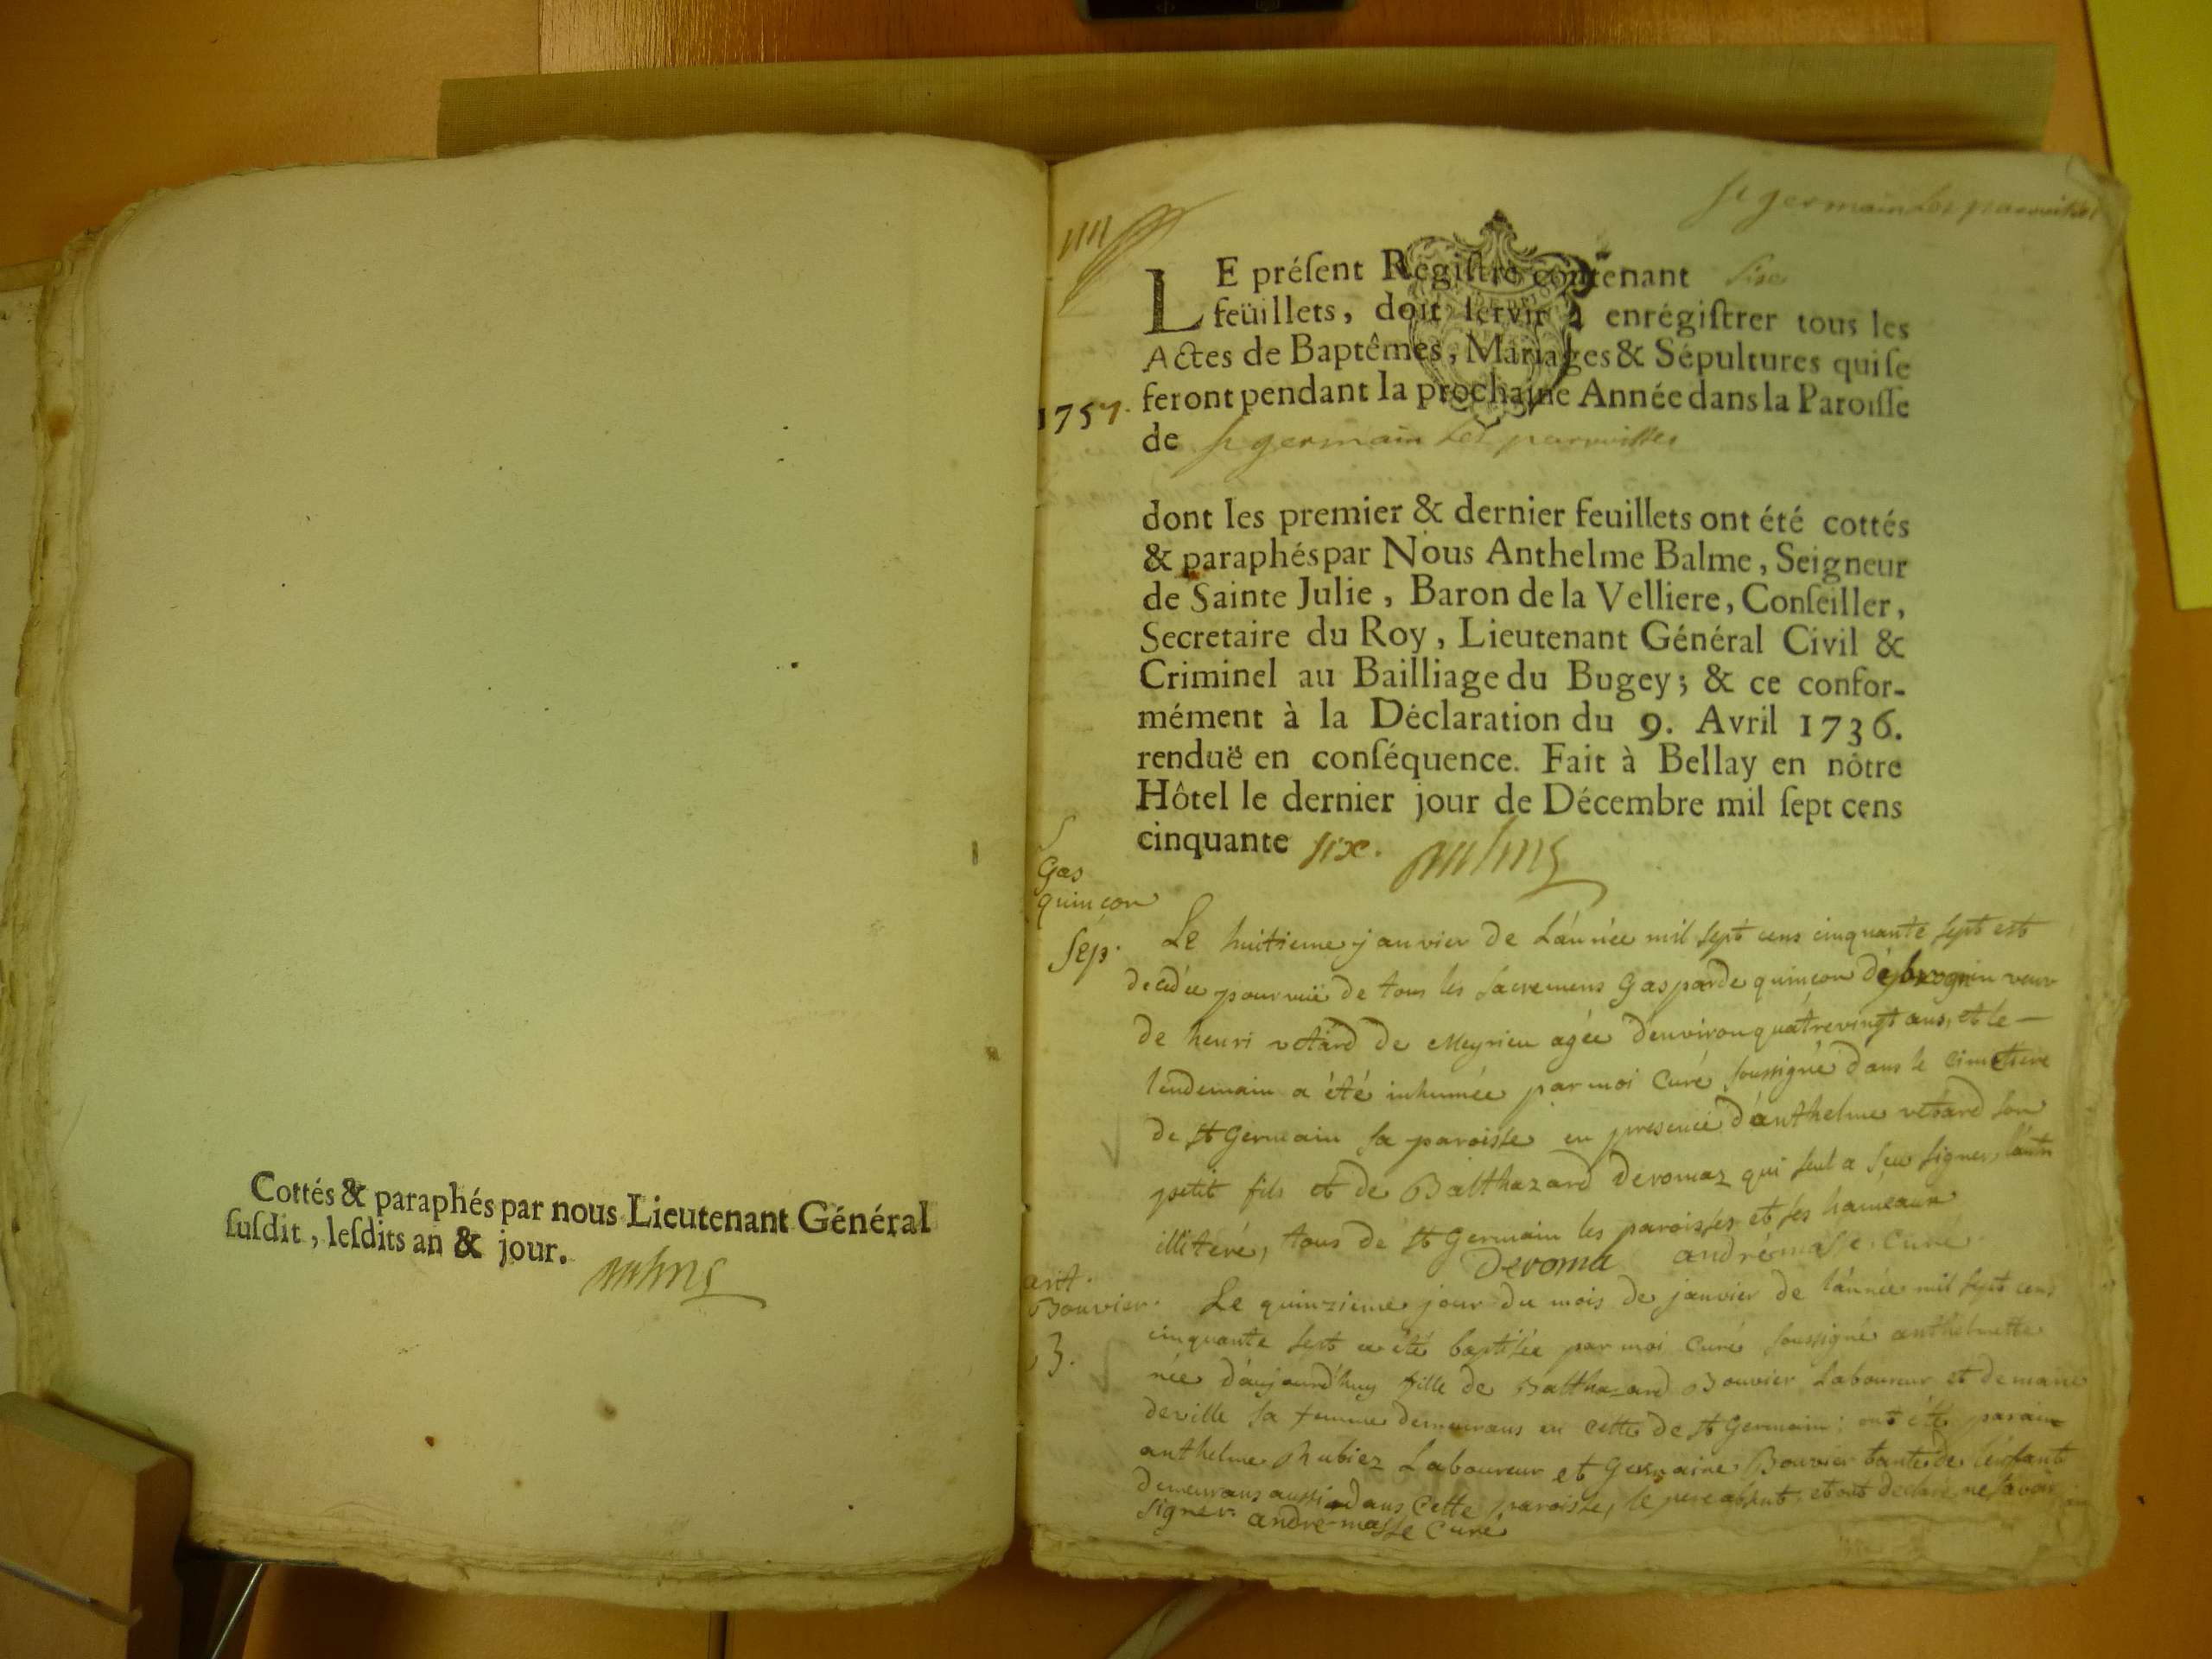 Cottés & paraphés par nous Lieutenant Général
ſuſdit, leſdits an & jour.
st germain les paroisses
LE préſent Regiſtre contenant six
feüillets, doit ſervir à enrégiſtrer tous les
Actes de Baptêmes, Mariages & Sépultures qui ſe
feront pendant la prochaine Année dans la Paroiſſe
1757.
de st germain les paroisses
dont les premier & dernier feuillets ont été cottés
& paraphés par Nous Anthelme Balme, Seigneur
de Sainte Julie, Baron de la Velliere, Conſeiller,
Secretaire du Roy, Lieutenant Général Civil &
Criminel au Bailliage du Bugey; & ce confor-
mément à la Déclaration du 9. Avril 1736.
renduë en conſéquence. Fait à Bellay en nôtre
Hôtel le dernier jour de Décembre mil ſept cens
cinquante six.
Gas
quinçon
Sep.
Le huitieme janvier de l'année mil sept cens cinquante sept est
decedée pourvuë de tous les sacremens Gasparde quinçon de brognin veuve
de henri vetard de Meyrieu agée d'environ quatrevingt ans, et le
lendemain a été inhumée par moi Curé soussigné dans le cimetiere
de st Germain sa paroisse en presence d'anthelme vetard son
petit fils et de Balthazard Deromaz qui seul a sçu signer, l'autre
illiteré, tous de st Germain les paroisses et ses hameaux
Deroma andré masse Curé
ant.
Bouvier.
B.
Le quinzieme jour du mois de janvier de l'année mil sept cens
cinquante sept a été baptisée par moi Curé soussigné anthelmette
née d'aujourd'huy fille de Balthazard Bouvier Laboureur et de marie
deville sa femme demeurans en cette de st Germain: ont été parain
anthelme Rubiez Laboureur et Germaine Bouvier tante de l'enfant
demeurans aussi dans cette paroisse, le pere absent, et ont declaré ne savoir
signer. andré masse Curé